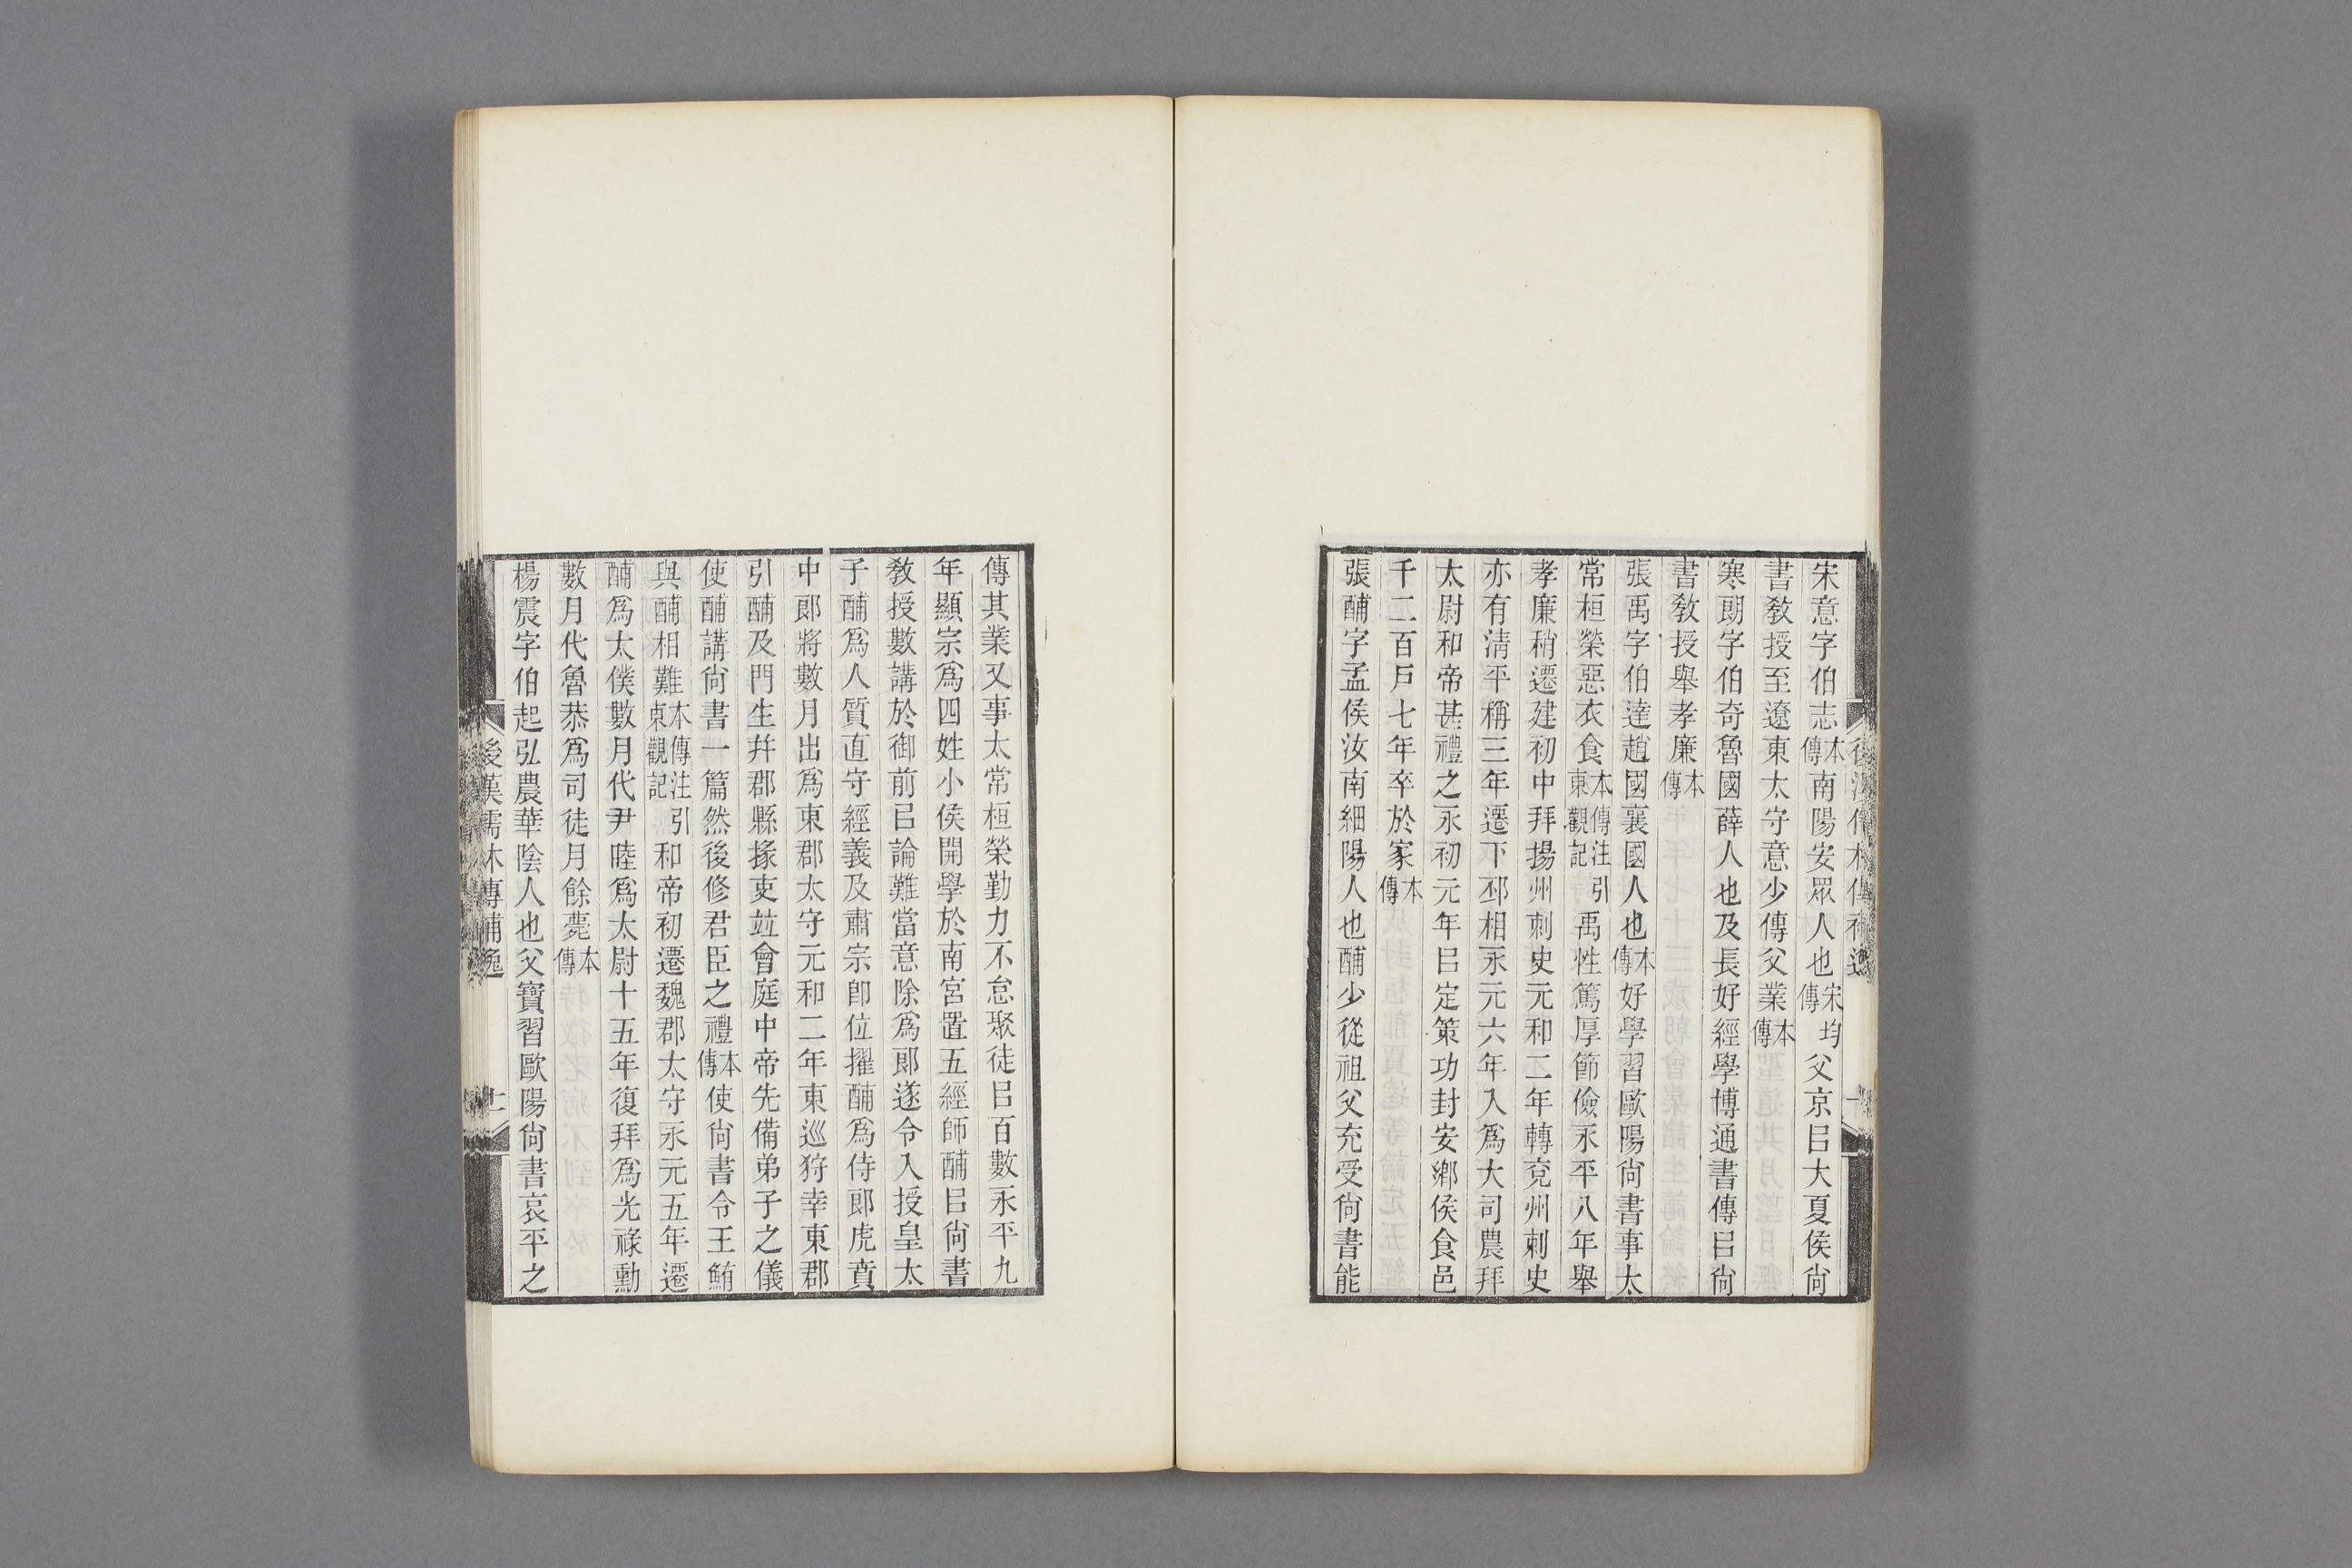 宋意字伯志本傳南陽安眾人也宋均傳父京㠯大夏侯尙
書敎授至遼東太守意少傳父業本傳
寒朗字伯奇魯國薛人也及長好經學博通書傳㠯尙
書敎授舉孝廉本傳
張禹字伯達趙國襄國人也本傳好學習歐陽尙書事太
常桓榮惡衣食本傳注引東觀記禹性篤厚節儉永平八年舉
孝廉稍遷建初中拜揚州刺史元和二年轉兗州刺史
亦有淸平稱三年遷下邳相永元六年入爲大司農拜
太尉和帝甚禮之永初元年㠯定策功封安鄉侯食邑
千二百戶七年卒於家本傳
張酺字孟侯汝南細陽人也酺少從祖父充受尙書能
傳其業又事太常桓榮勤力不怠聚徒㠯百數永平九
年顯宗爲四姓小侯開學於南宮置五經師酺㠯尙書
敎授數講於御前㠯論難當意除爲郎遂令入授皇太
子酺爲人質直守經義及肅宗卽位擢酺爲侍郎虎賁
中郎將數月出爲東郡太守元和二年東巡狩幸東郡
引酺及門生幷郡縣掾吏竝會庭中帝先備弟子之儀
使酺講尙書一篇然後修君臣之禮本傳使尙書令王鮪
與酺相難本傳注引東觀記和帝初遷魏郡太守永元五年遷
酺爲太僕數月代尹睦爲太尉十五年復拜爲光祿勳
數月代魯恭爲司徒月餘薨本傳
楊震字伯起弘農華陰人也父寶習歐陽尙書哀平之
後漢儒林傳補逸